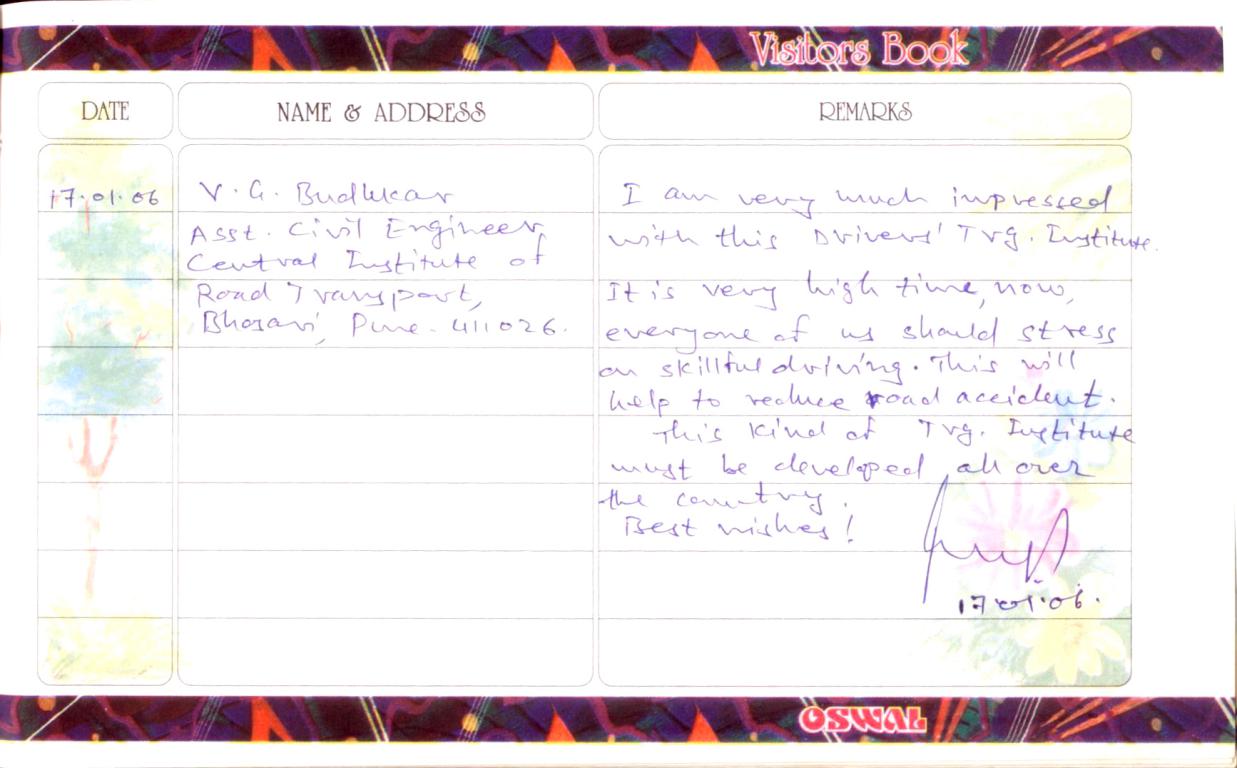 Visitors Book
DATE
NAME & ADDRESS
REMARKS
17.01.06
V. G. Budhkar
Asst. Civil Engineer,
Central Institute of
Road Transport,
Bhosari, Pune - 411026.
I am very much impressed
with this Drivers' Trg. Institute.
It is very high time, now,
everyone of us should stress
on skillful driving. This will
help to reduce road accident.
This kind of Trg. Institute
must be developed all over
the country.
Best wishes!
17.01.06.
OSWAL